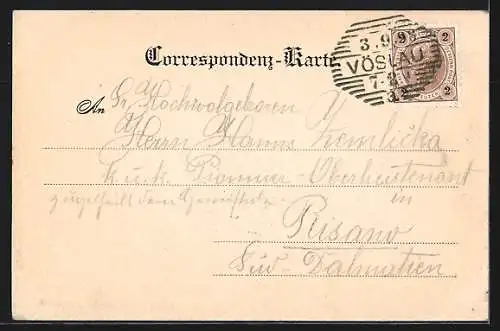 Correspondenz-Karte
3.9.98
VÖSLAU
7-8 V
3
2 2
2 2
An Sr. Hochwolgeboren
Herrn Hanns Zemlička
k.u.k. Pionnier-Oberlieutenant
zugetheilt dem
in
Risano
Süd-Dalmatien